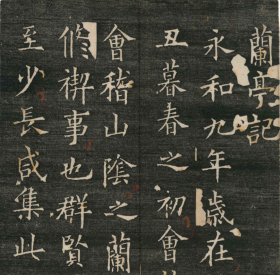 蘭亭記
永和九年歲在
丑暮春之初會
會稽山陰之蘭
修禊事也群賢
至少長咸集此